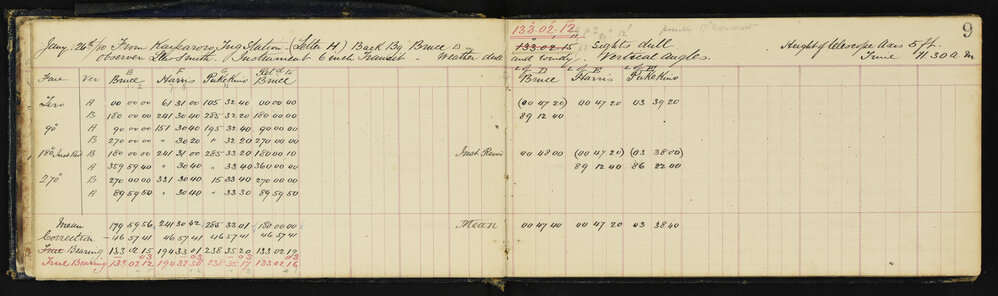 9
133.02.12
Jany. 26th/10 From Kaiparoro Trig Station (Letter H) Back Bg Bruce 133.02.15 Sights dull Height of telescope axis 5 ft.
Observer Llew Smith. Instrument 6 inch Transit - Weather dull and windy. Vertical angles. Time 11.30 a.m
Face Ver Bruce Harris Pukekino Ret'd to Bruce Bruce Harris Pukekino
Zero A 00 00 00 61 31 00 105 32 40 00 00 00 (00 47 20) 00 47 20 03 39 20
B 180 00 00 241 30 40 285 32 20 180 00 00 89 12 40
90° A 90 00 00 151 30 40 195 32 40 90 00 00
B 270 00 00 " 30 20 " 32 20 270 00 00
180° Inst Rev'd B 180 00 00 241 31 00 285 33 20 180 00 10 Inst Rev'd 00 48 00 (00 47 20) (03 38 00)
A 359 59 40 " 30 40 " 33 40 360 00 00 89 12 40 86 22 00
270° B 270 00 00 331 30 40 15 33 40 270 00 00
A 89 59 50 " 30 40 " 33 30 89 59 50
Mean 179 59 56 241 30 42 285 33 01 180 00 00 Mean 00 47 40 00 47 20 03 38 40
Correction - 46 57 41 46 57 41 46 57 41 46 57 41
True Bearing 133 02 15 194 33 01 238 35 20 133 02 19
True Bearing 133 02 12 194 32 58 238 35 17 133 02 16